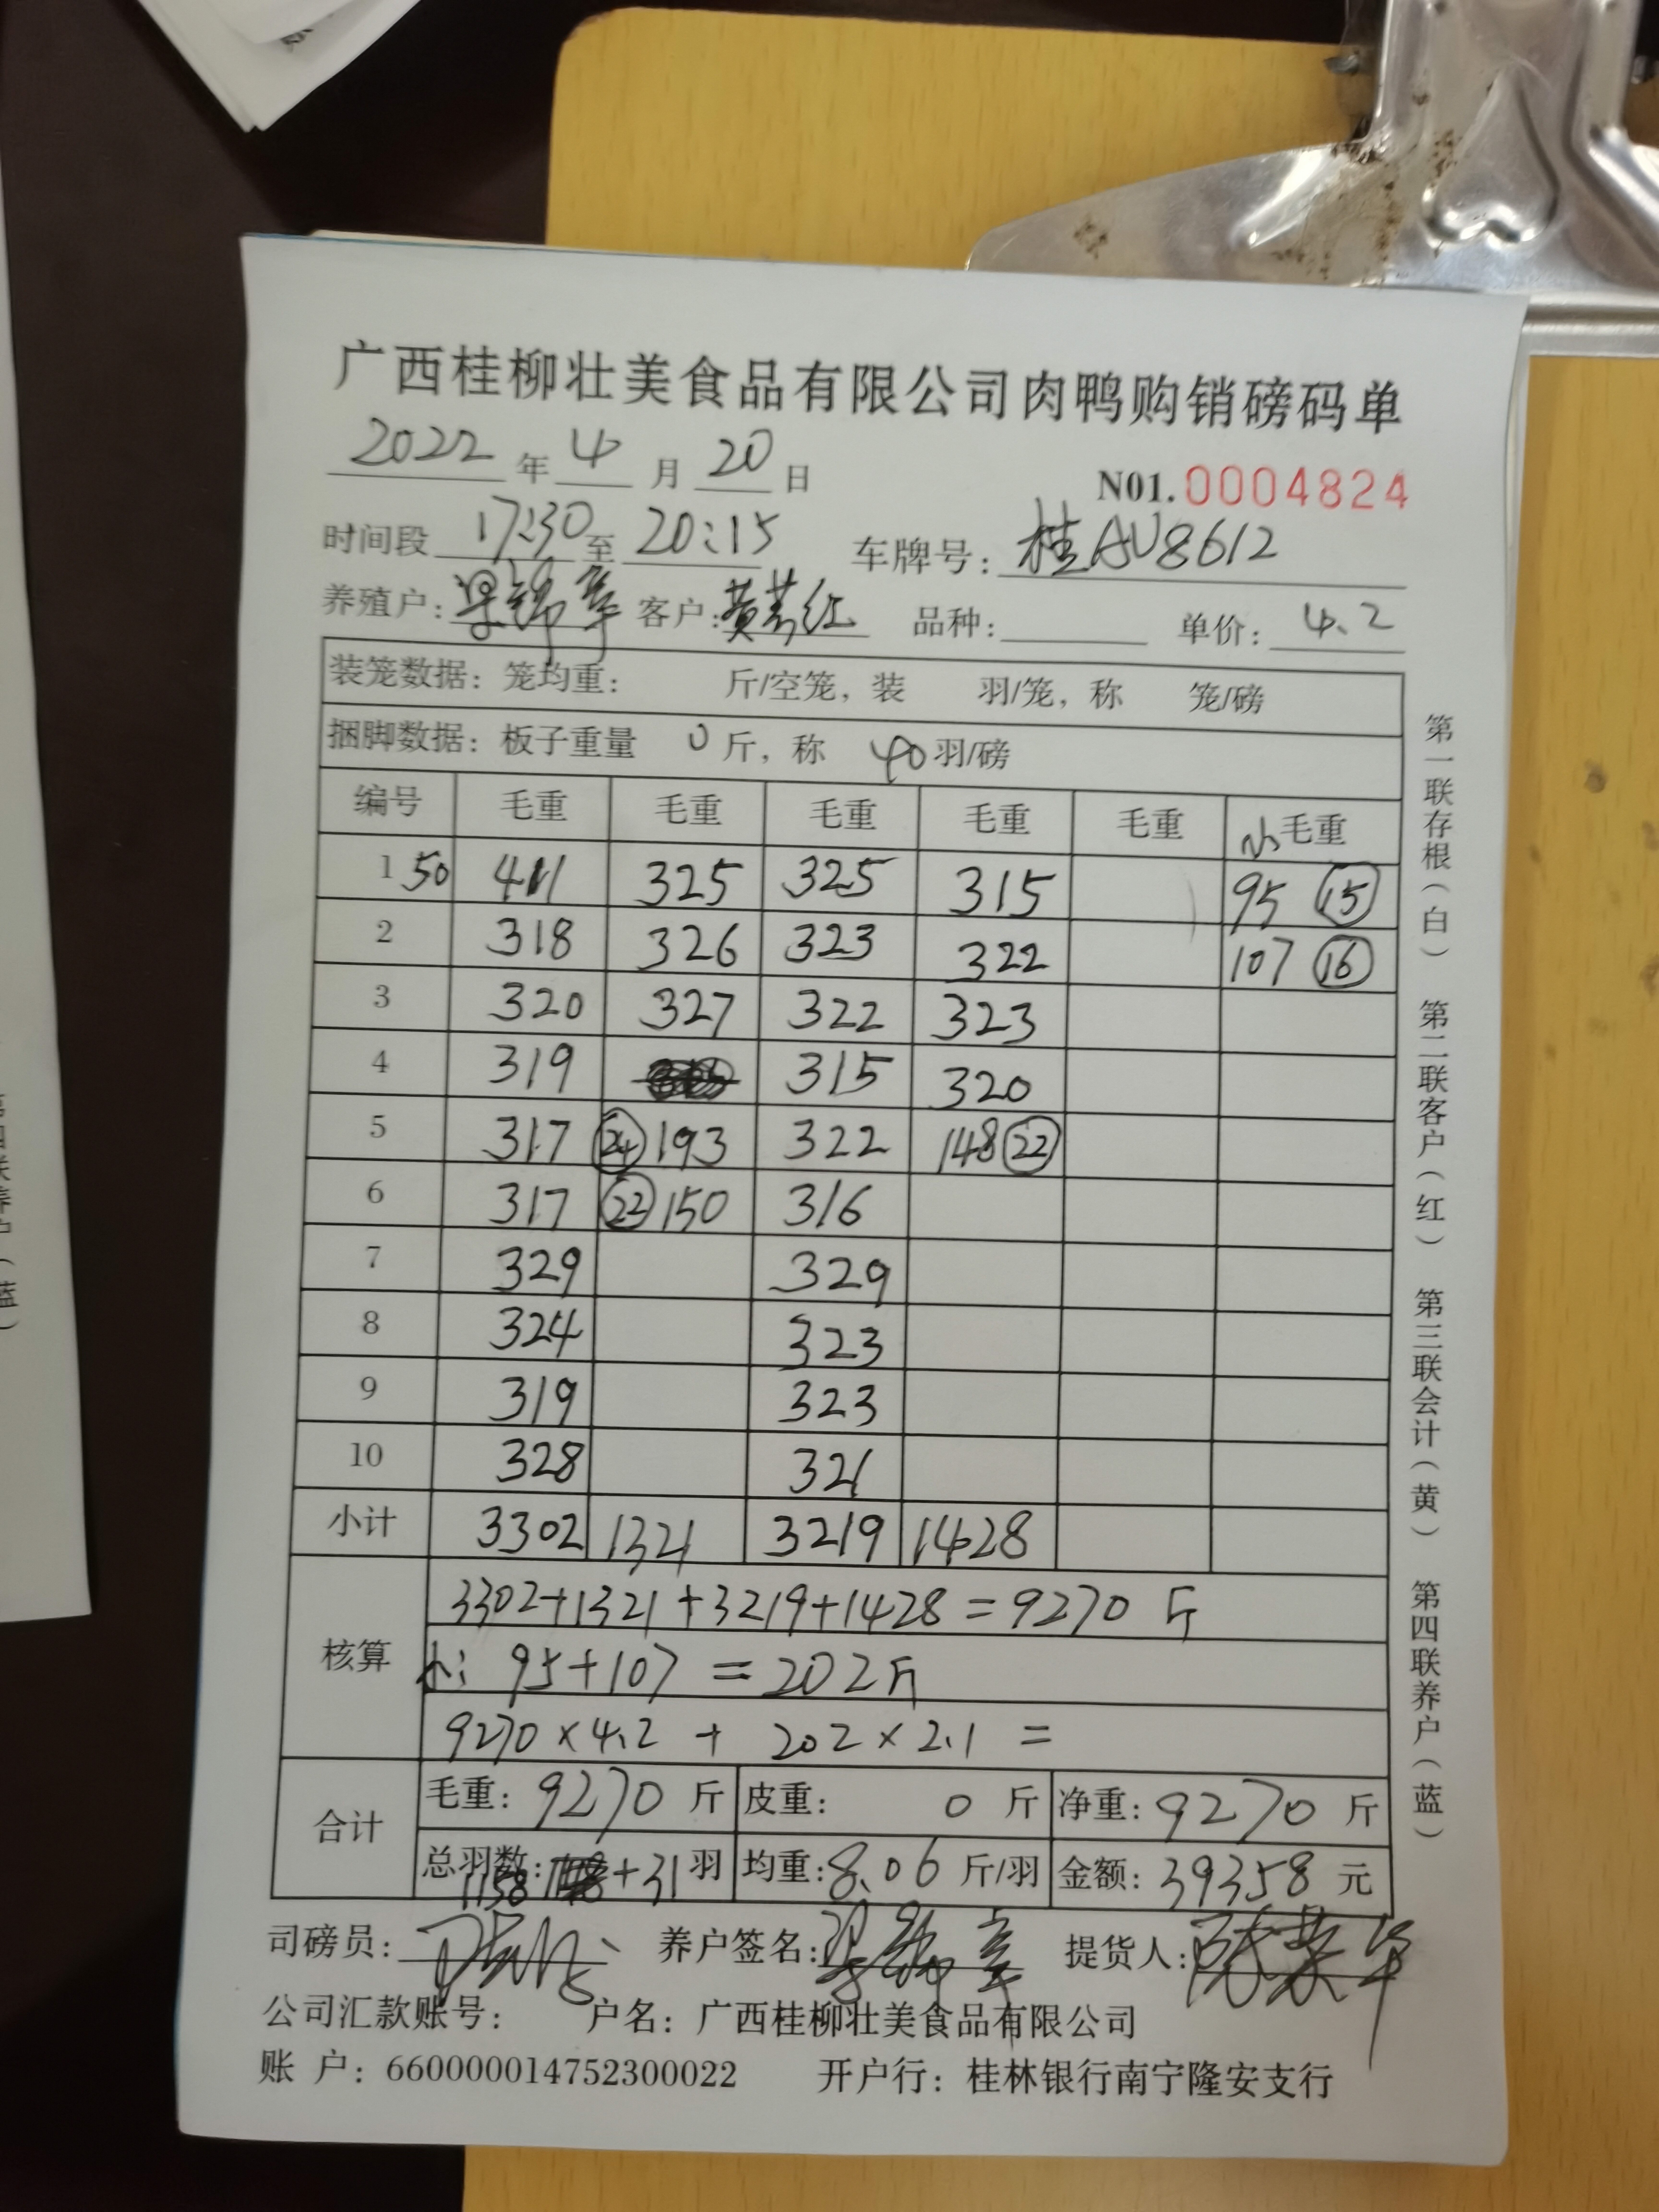 广西桂柳壮美食品有限公司肉鸭购销磅码单
2022 年 4 月 20 日 N01.0004824
时间段 17:30 至 20:15 车牌号: 桂AU8612
养殖户: 梁锦章 客户: 黄芳红 品种: 单价: 4.2
装笼数据: 笼均重: 斤/空笼, 装 羽/笼, 称 笼/磅
捆脚数据: 板子重量 0 斤, 称 40 羽/磅
编号 毛重 毛重 毛重 毛重 毛重 小毛重
1 50 411 325 325 315 95 15
2 318 326 323 322 107 16
3 320 327 322 323
4 319 315 320
5 317 24 193 322 148 22
6 317 22 150 316
7 329 329
8 324 323
9 319 323
10 328 321
小计 3302 1321 3219 1428
核算 3302+1321+3219+1428=9270 斤
小: 95+107=202斤
9270×4.2 + 202×2.1 =
合计 毛重: 9270 斤 皮重: 0 斤 净重: 9270 斤
总羽数: 1158 +31 羽 均重: 8.06 斤/羽 金额: 39358 元
司磅员: 养户签名: 梁锦章 提货人:
公司汇款账号: 户名: 广西桂柳壮美食品有限公司
账 户: 660000014752300022 开户行: 桂林银行南宁隆安支行
第一联存根(白) 第二联客户(红) 第三联会计(黄) 第四联养户(蓝)